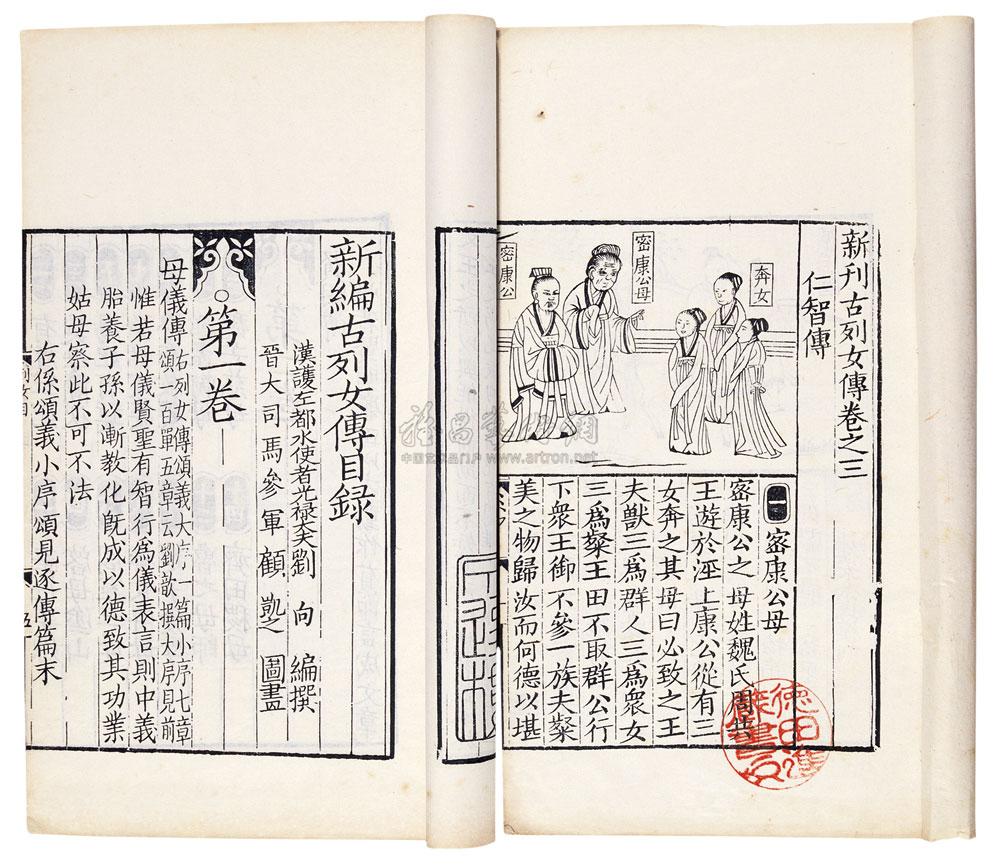 新刊古列女傳卷之三
仁智傳
奔女
密康公母
密康公
一 密康公母
密康公之母姓魏氏周共
王遊於涇上康公從有三
女奔之其母曰必致之王
夫獸三爲群人三爲衆女
三爲粲王田不取群公行
下衆王御不參一族夫粲
美之物歸汝而何德以堪
新編古列女傳目録
漢護左都水使者光禄大夫劉 向 編撰
晉大司馬參軍顧 凱之 圖畫
第一卷
母儀傳
右列女傳頌義大序一篇小序七章
頌一百單五章云劉歆撰大序見前
惟若母儀賢聖有智行爲儀表言則中義
胎養子孫以漸教化既成以德致其功業
姑母察此不可不法
右係頌義小序頌見逐傳篇末
www.artron.net